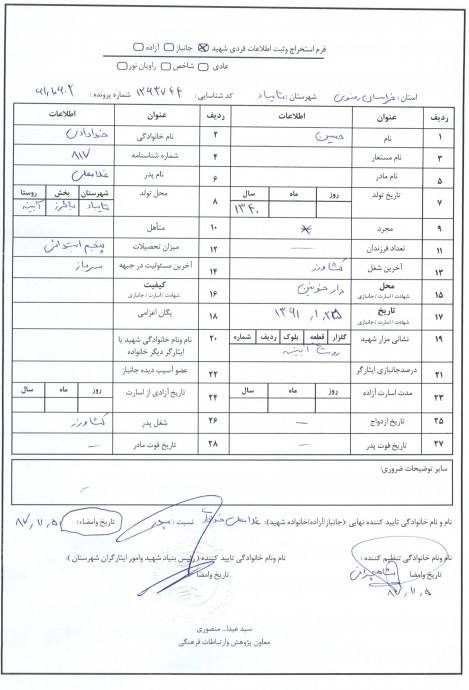 فرم استخراج وثبت اطلاعات فردی شهید ☒ جانباز □ آزاده □
عادی □ شاخص □ راویان نور □
استان: خراسان رضوی شهرستان: تایباد کد شناسایی: شماره پرونده:
ردیف عنوان اطلاعات ردیف عنوان اطلاعات
۱ نام حسین ۲ نام خانوادگی خدادادی
۳ نام مستعار ۴ شماره شناسنامه ۸۱۷
۵ نام مادر ۶ نام پدر غلامعلی
۷ تاریخ تولد روز ماه سال ۱۳۴۰ ۸ محل تولد شهرستان بخش روستا تایباد باخرز آبینه
۹ مجرد * ۱۰ متأهل
۱۱ تعداد فرزندان — ۱۲ میزان تحصیلات پنجم ابتدائی
۱۳ آخرین شغل کشاورز ۱۴ آخرین مسئولیت در جبهه سرباز
۱۵ محل شهادت/ اسارت/ جانبازی دارخوئین ۱۶ کیفیت شهادت/ اسارت/ جانبازی
۱۷ تاریخ شهادت/ اسارت/ جانبازی ۱۸ یگان اعزامی
۱۹ نشانی مزار شهید گلزار قطعه بلوک ردیف شماره روستای آبینه ۲۰ نام ونام خانوادگی شهید یا ایثارگر دیگر خانواده
۲۱ درصدجانبازی ایثارگر ۲۲ عضو آسیب دیده جانباز
۲۳ مدت اسارت آزاده روز ماه سال ۲۴ تاریخ آزادی از اسارت روز ماه سال
۲۵ تاریخ ازدواج — ۲۶ شغل پدر کشاورز
۲۷ تاریخ فوت پدر — ۲۸ تاریخ فوت مادر —
سایر توضیحات ضروری:
نام و نام خانوادگی تایید کننده نهایی :(جانباز/آزاده/خانواده شهید): غلامعلی خدادادی نسبت : پدر تاریخ وامضاء: ۸۷،۱۱،۵
نام ونام خانوادگی تنظیم کننده : نام ونام خانوادگی تایید کننده ( رئیس بنیاد شهید وامور ایثارگران شهرستان ):
تاریخ وامضا تاریخ وامضا
۸۷،۱۱،۵
سید عبدا... منصوری
معاون پژوهش وارتباطات فرهنگی